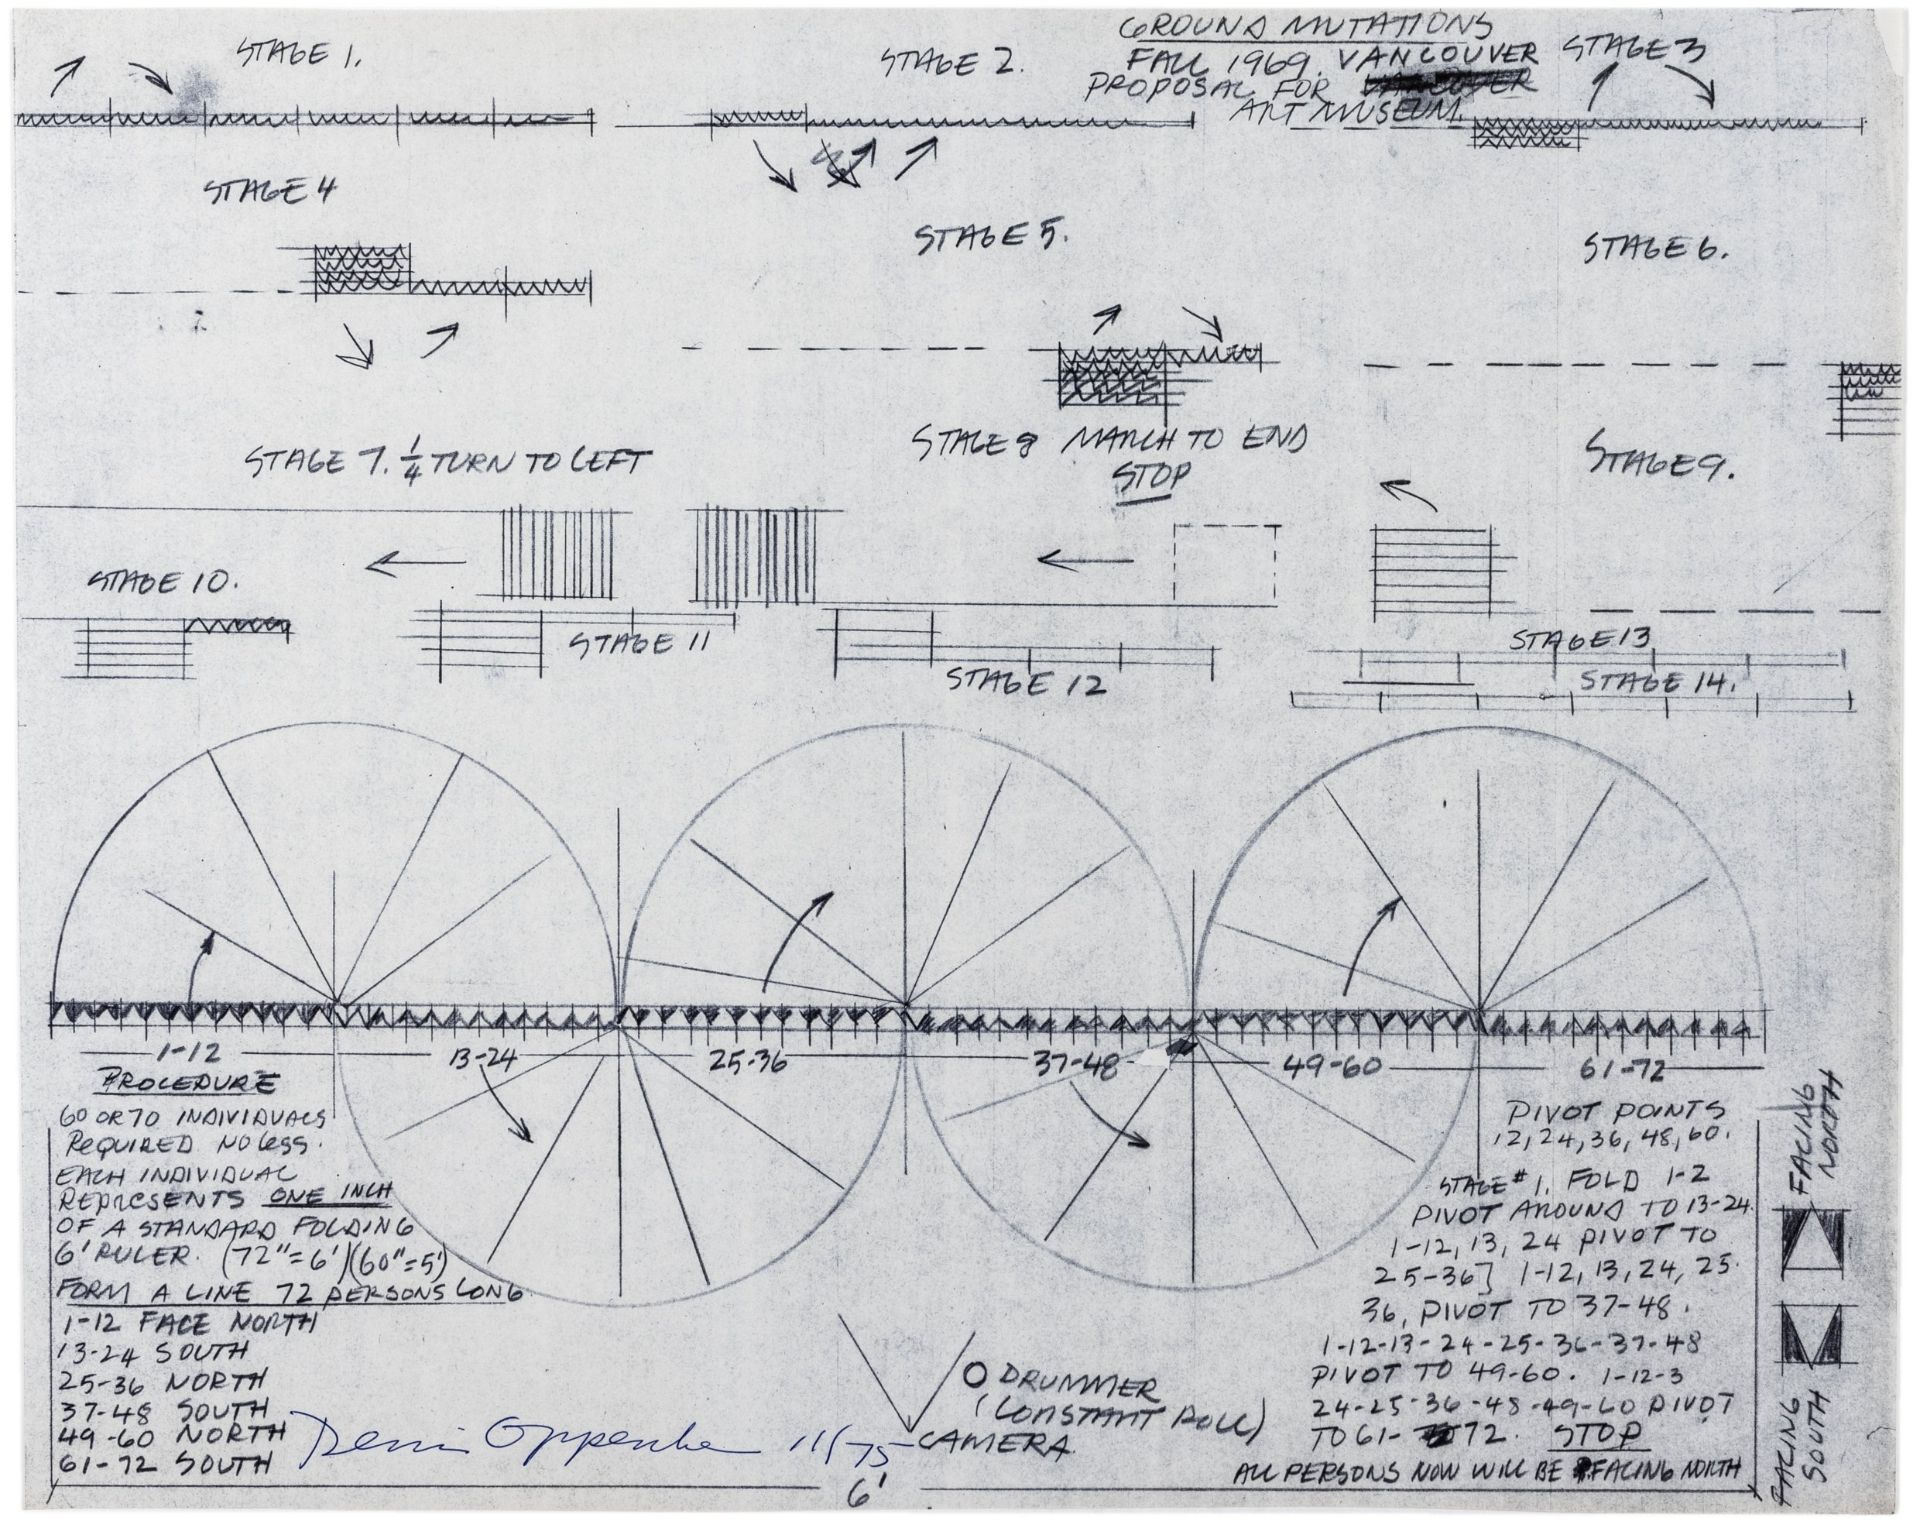 STAGE 1.
STAGE 2.
GROUND MUTATIONS
FALL 1969. VANCOUVER
PROPOSAL FOR
ART MUSEUM.
STAGE 3
STAGE 4
STAGE 5.
STAGE 6.
STAGE 7. 1/4 TURN TO LEFT
STAGE 8 MARCH TO END
STOP
STAGE 9.
STAGE 10.
STAGE 11
STAGE 12
STAGE 13
STAGE 14.
1-12 13-24 25-36 37-48 49-60 61-72
PROCEDURE
60 OR 70 INDIVIDUALS
REQUIRED NO LESS.
EACH INDIVIDUAL
REPRESENTS ONE INCH
OF A STANDARD FOLDING
6' RULER. (72"=6')(60"=5')
FORM A LINE 72 PERSONS LONG
1-12 FACE NORTH
13-24 SOUTH
25-36 NORTH
37-48 SOUTH
49-60 NORTH
61-72 SOUTH
Dennis Oppenheim 11/75
DRUMMER
(CONSTANT ROLL)
CAMERA
6'
PIVOT POINTS
12, 24, 36, 48, 60.
STAGE #1. FOLD 1-2
PIVOT AROUND TO 13-24.
1-12, 13, 24 PIVOT TO
25-36] 1-12, 13, 24, 25.
36, PIVOT TO 37-48.
1-12-13-24-25-36-37-48
PIVOT TO 49-60. 1-12-3
24-25-36-48-49-60 PIVOT
TO 61-72. STOP
ALL PERSONS NOW WILL BE FACING NORTH
FACING
NORTH
FACING
SOUTH